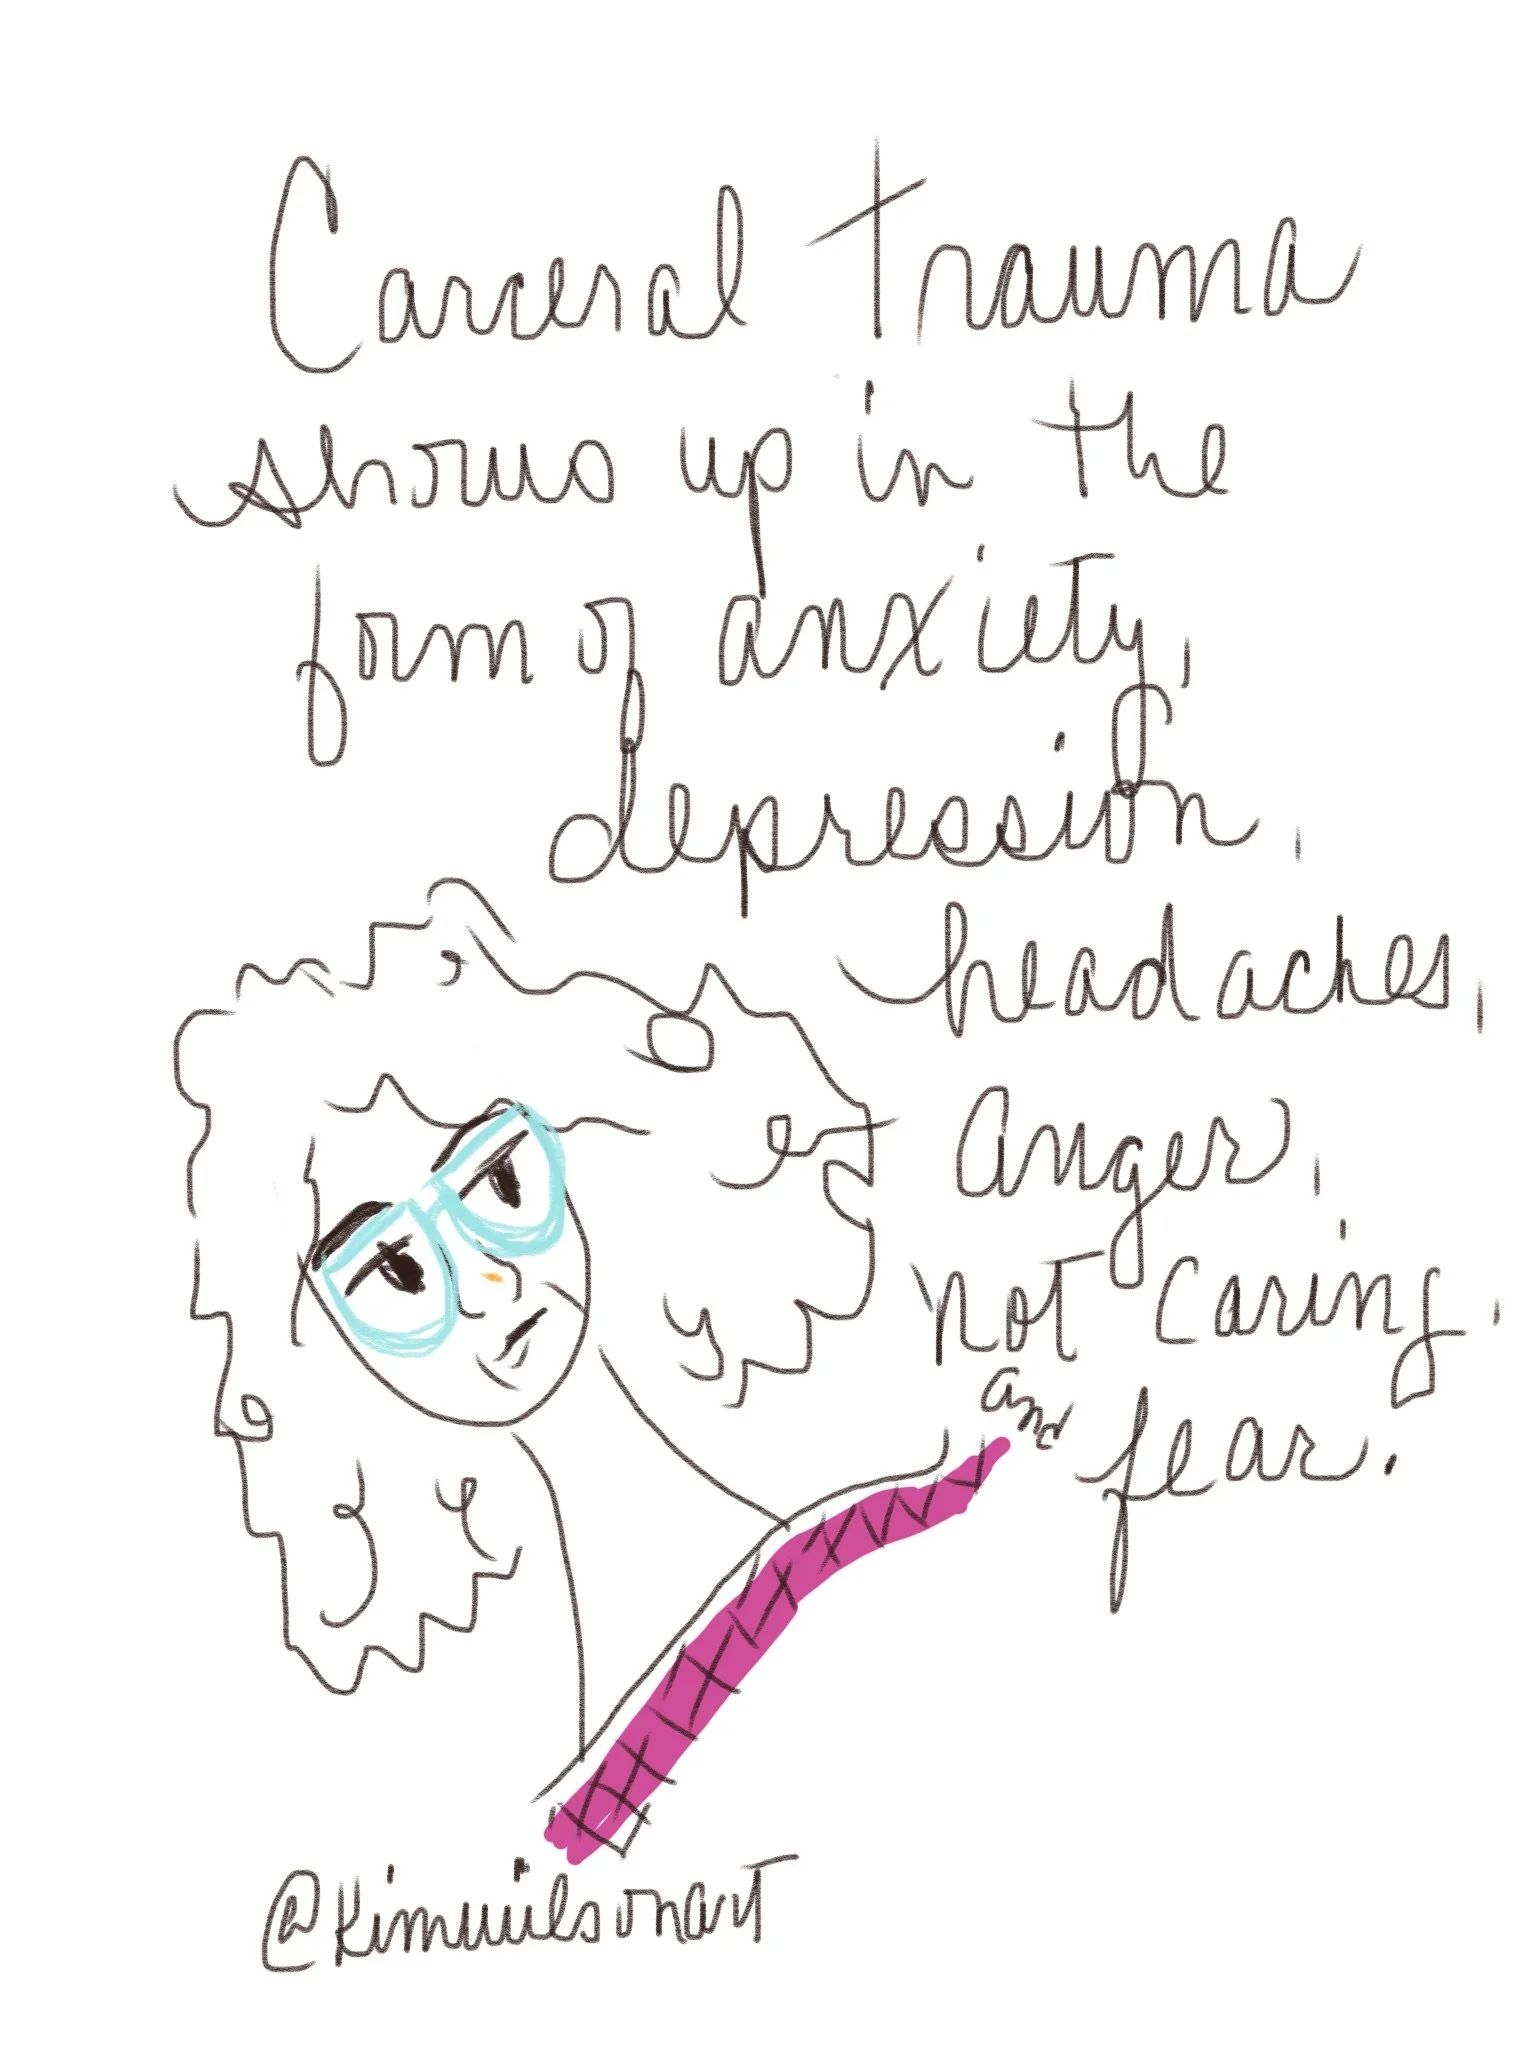 Carceral trauma
shows up in the
form of anxiety,
depression,
headaches,
anger,
not caring,
and fear.
@Kimwilsonart